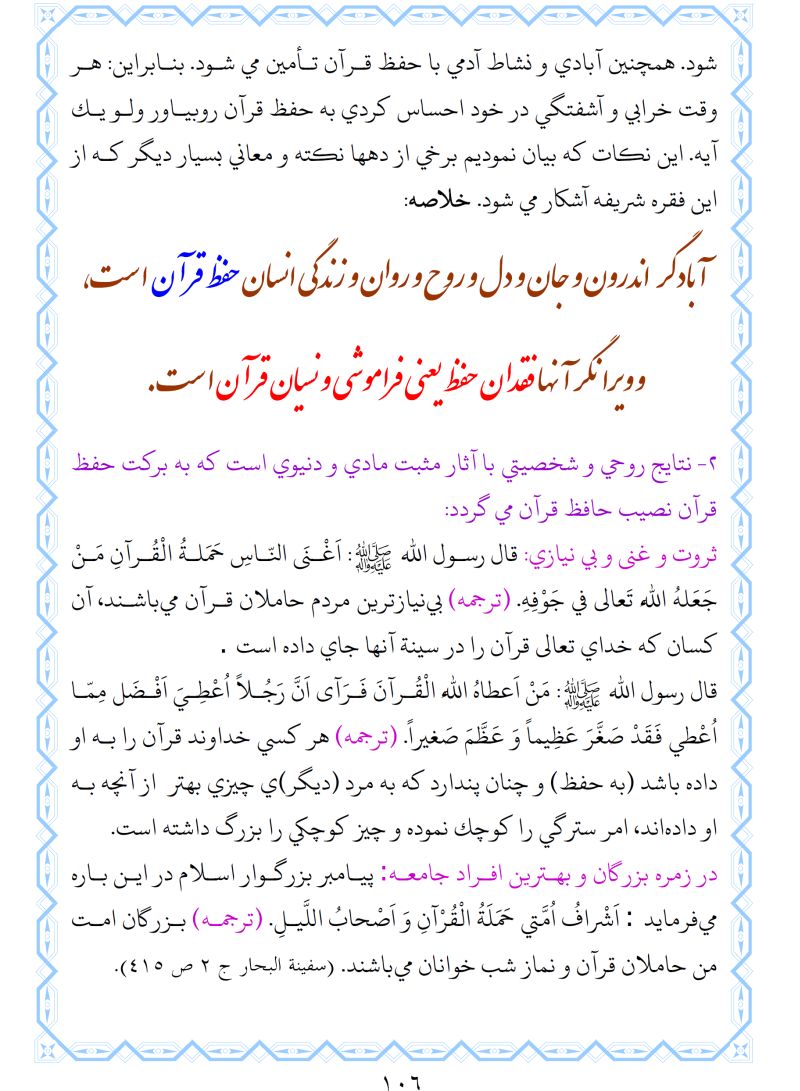 شود. همچنين آبادي و نشاط آدمي با حفظ قرآن تأمين مي شود. بنابراين: هر
وقت خرابي و آشفتگي در خود احساس كردي به حفظ قرآن روبياور ولو يك
آيه. اين نكات كه بيان نموديم برخي از دهها نكته و معاني بسيار ديگر كه از
اين فقره شريفه آشكار مي شود. خلاصه:
آبادگر اندرون و جان و دل و روح و روان و زندگی انسان حفظ قرآن است،
و ویرانگر آنها فقدان حفظ یعنی فراموشی و نسیان قرآن است.
۲- نتايج روحي و شخصيتي با آثار مثبت مادي و دنيوي است كه به بركت حفظ
قرآن نصيب حافظ قرآن مي گردد:
ثروت و غنى و بي نيازي: قال رسول الله ﷺ: اَغْنَى النّاسِ حَمَلةُ الْقُرآنِ مَنْ
جَعَلهُ اللهُ تَعالى في جَوْفِهِ. (ترجمه) بي‌نيازترين مردم حاملان قرآن مي‌باشند، آن
كسان كه خداي تعالى قرآن را در سينة آنها جاي داده است .
قال رسول الله ﷺ: مَنْ اَعطاهُ اللهُ الْقُرآنَ فَرَآى اَنَّ رَجُلاً اُعْطِيَ اَفْضَل مِمّا
اُعْطي فَقَدْ صَغَّرَ عَظِيماً وَ عَظَّمَ صَغيراً. (ترجمه) هر كسي خداوند قرآن را به او
داده باشد (به حفظ) و چنان پندارد كه به مرد (ديگر)ي چيزي بهتر از آنچه به
او داده‌اند، امر سترگي را كوچك نموده و چيز كوچكي را بزرگ داشته است.
در زمره بزرگان و بهترين افراد جامعه: پيامبر بزرگوار اسلام در اين باره
مي‌فرمايد : اَشْرافُ اُمَّتي حَمَلَةُ الْقُرْآنِ وَ اَصْحابُ اللَّيلِ. (ترجمه) بزرگان امت
من حاملان قرآن و نماز شب خوانان مي‌باشند. (سفينة البحار ج ٢ ص ٤١٥).
١٠٦